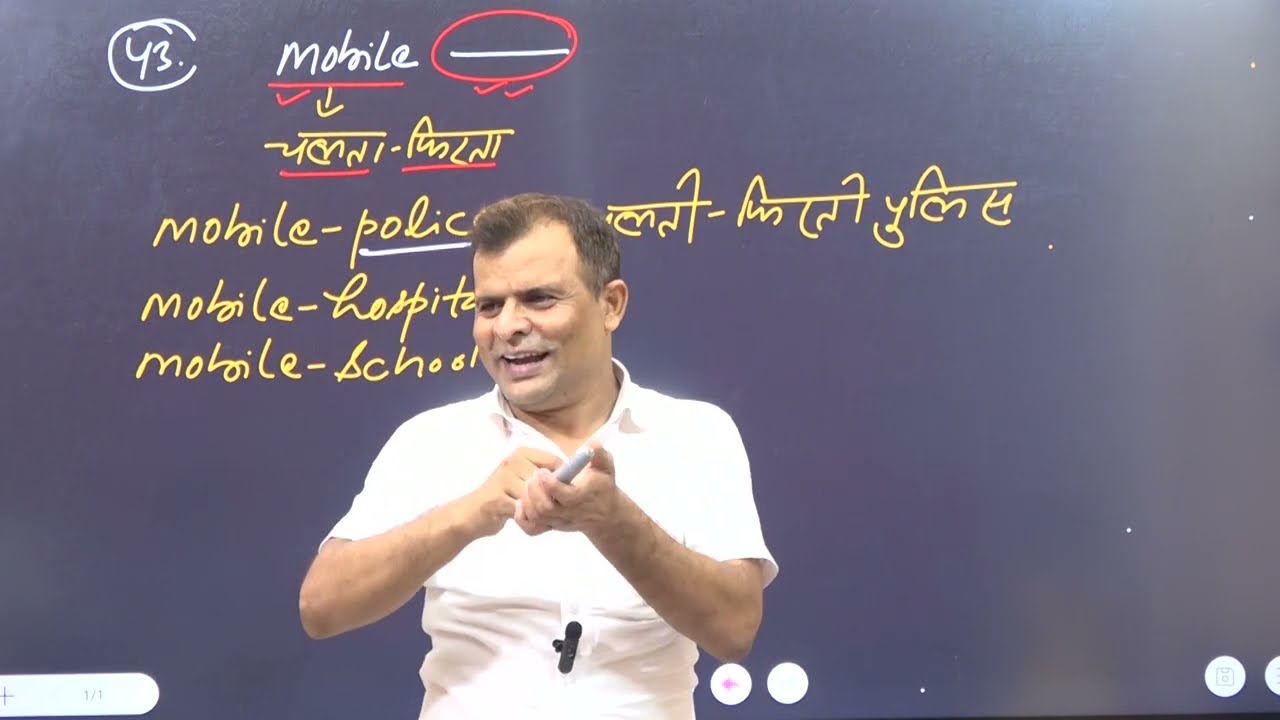 43. mobile ____
चलता-फिरता
mobile-polic लती-फिरती पुलिस
mobile-hospita
mobile-school
1/1